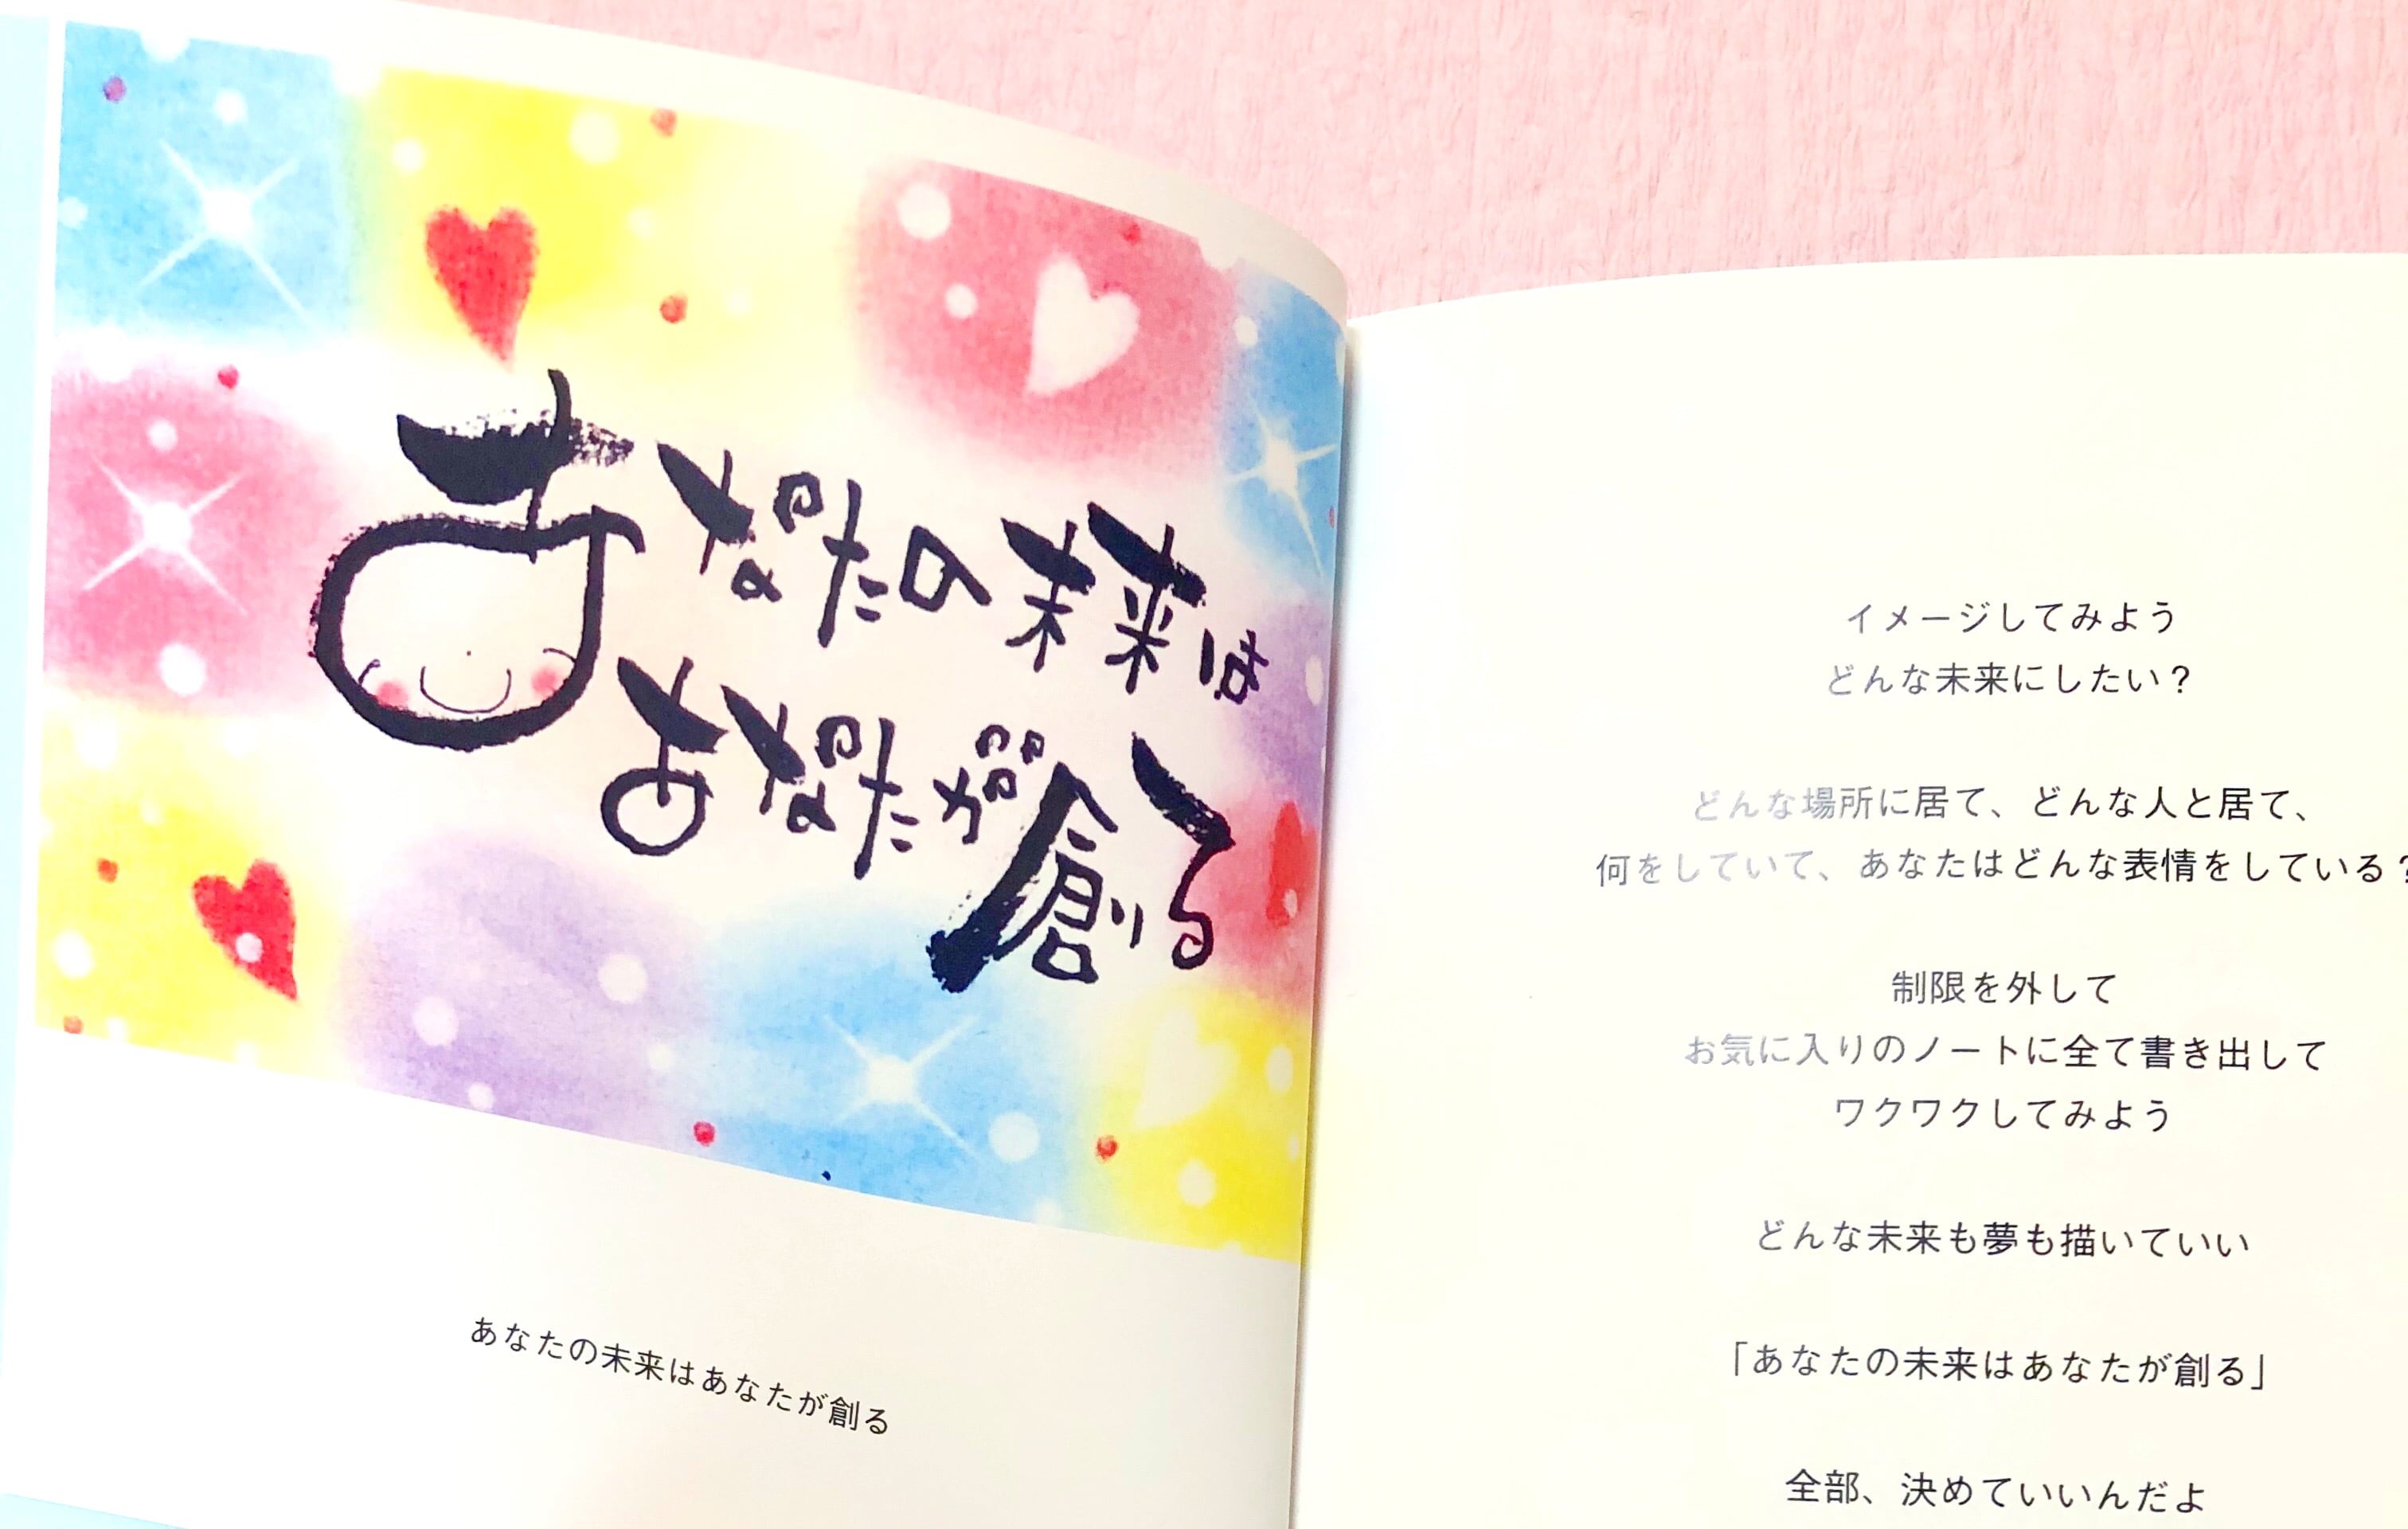 あなたの未来は
あなたが創る
あなたの未来はあなたが創る
イメージしてみよう
どんな未来にしたい？
どんな場所に居て、どんな人と居て、
何をしていて、あなたはどんな表情をしている？
制限を外して
お気に入りのノートに全て書き出して
ワクワクしてみよう
どんな未来も夢も描いていい
「あなたの未来はあなたが創る」
全部、決めていいんだよ